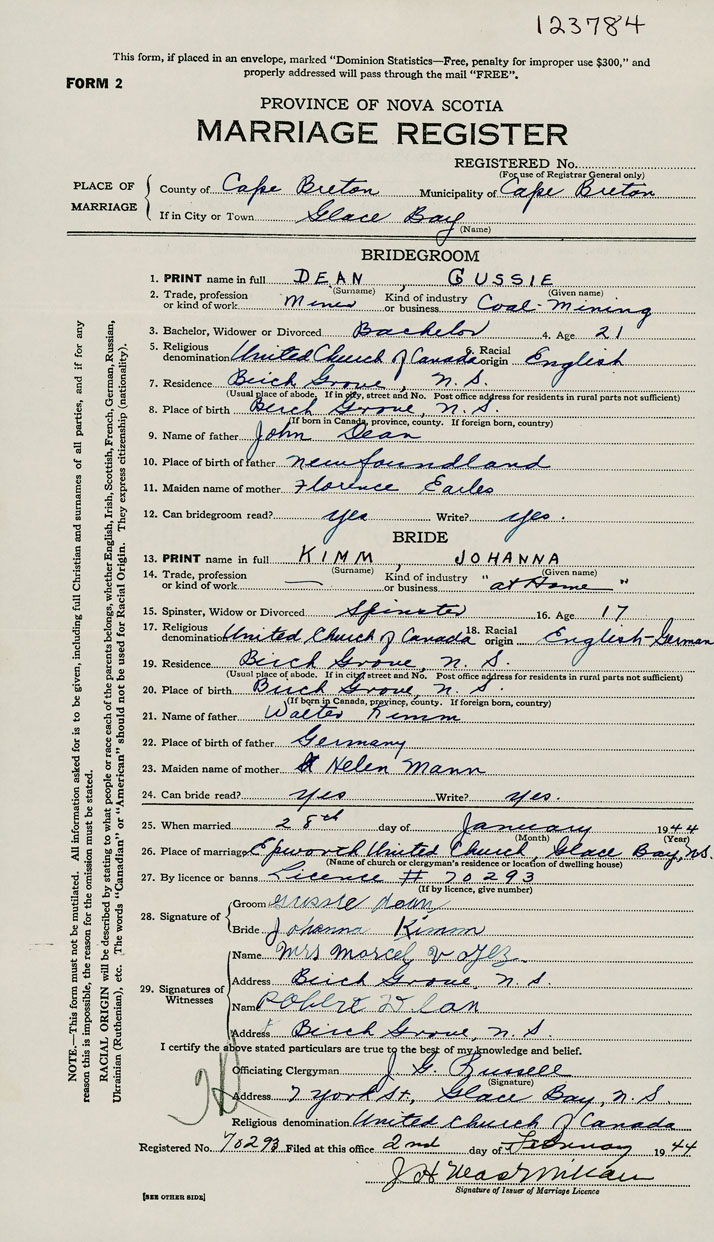 123784
This form, if placed in an envelope, marked "Dominion Statistics—Free, penalty for improper use $300," and
properly addressed will pass through the mail "FREE".
FORM 2
PROVINCE OF NOVA SCOTIA
MARRIAGE REGISTER
REGISTERED No.
(For use of Registrar General only)
PLACE OF MARRIAGE
County of Cape Breton Municipality of Cape Breton
If in City or Town Glace Bay
(Name)
BRIDEGROOM
1. PRINT name in full DEAN, GUSSIE
(Surname) (Given name)
2. Trade, profession or kind of work Miner Kind of industry or business Coal-Mining
3. Bachelor, Widower or Divorced Bachelor 4. Age 21
5. Religious denomination United Church of Canada 6. Racial origin English
7. Residence Birch Grove, N. S.
(Usual place of abode. If in city, street and No. Post office address for residents in rural parts not sufficient)
8. Place of birth Birch Grove, N. S.
(If born in Canada, province, county. If foreign born, country)
9. Name of father John Dean
10. Place of birth of father Newfoundland
11. Maiden name of mother Florence Earles
12. Can bridegroom read? yes Write? yes.
BRIDE
13. PRINT name in full KIMM, JOHANNA
(Surname) (Given name)
14. Trade, profession or kind of work — Kind of industry or business "at Home"
15. Spinster, Widow or Divorced Spinster 16. Age 17
17. Religious denomination United Church of Canada 18. Racial origin English-German
19. Residence Birch Grove, N. S.
(Usual place of abode. If in city, street and No. Post office address for residents in rural parts not sufficient)
20. Place of birth Birch Grove, N. S.
(If born in Canada, province, county. If foreign born, country)
21. Name of father Walter Kimm
22. Place of birth of father Germany
23. Maiden name of mother Helen Mann
24. Can bride read? yes Write? yes.
25. When married 28th day of January 1944
(Month) (Year)
26. Place of marriage Epworth United Church, Glace Bay, N.S.
(Name of church or clergyman's residence or location of dwelling house)
27. By licence or banns Licence # 70293
(If by licence, give number)
28. Signature of
Groom Gussie Dean
Bride Johanna Kimm
29. Signatures of Witnesses
Name Mrs Marcel
Address Birch Grove, N. S.
Name Robert
Address Birch Grove, N. S.
I certify the above stated particulars are true to the best of my knowledge and belief.
Officiating Clergyman J. G. Russell
(Signature)
Address 7 York St, Glace Bay, N. S.
Religious denomination United Church of Canada
Registered No. 70293 Filed at this office 2nd day of February 1944
J H MacMillan
Signature of Issuer of Marriage Licence
[SEE OTHER SIDE]
NOTE.—This form must not be mutilated. All information asked for is to be given, including full Christian and surnames of all parties, and if for any
reason this is impossible, the reason for the omission must be stated.
RACIAL ORIGIN will be described by stating to what people or race each of the parents belongs, whether English, Irish, Scottish, French, German, Russian,
Ukrainian (Ruthenian), etc. The words "Canadian" or "American" should not be used for Racial Origin. They express citizenship (nationality).